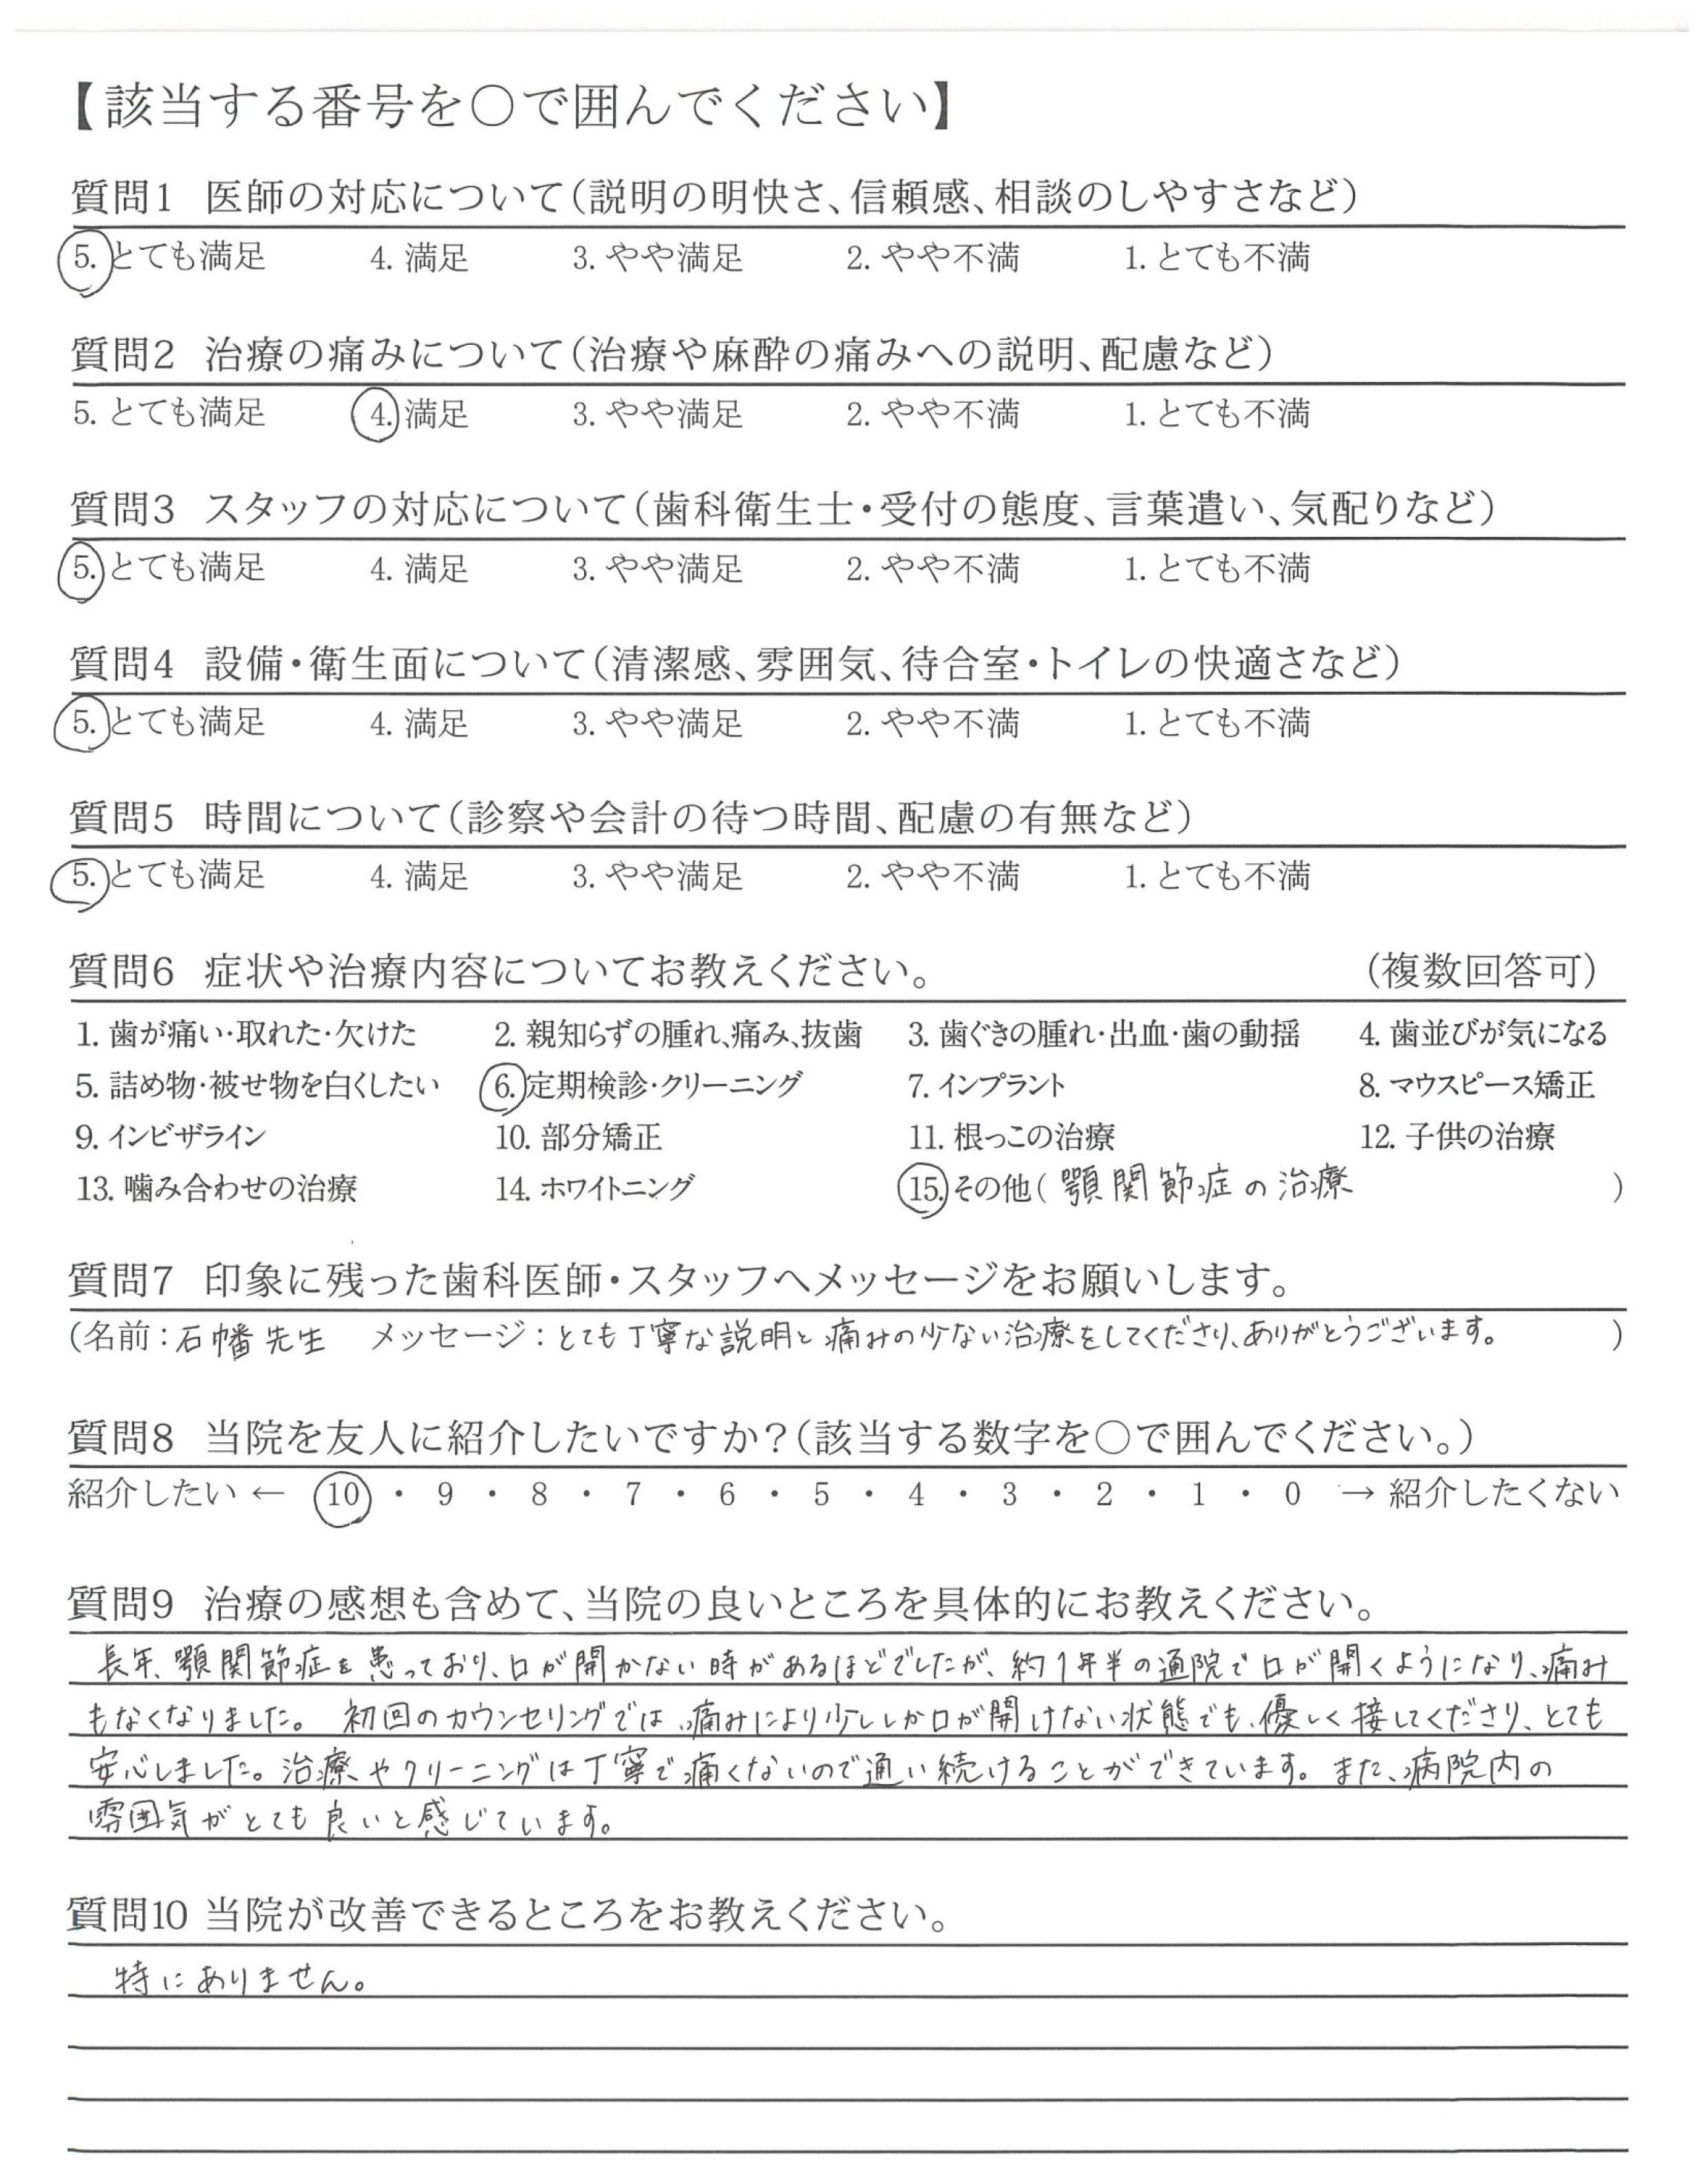 【該当する番号を〇で囲んでください】
質問1 医師の対応について(説明の明快さ、信頼感、相談のしやすさなど)
5. とても満足 4. 満足 3. やや満足 2. やや不満 1. とても不満
質問2 治療の痛みについて(治療や麻酔の痛みへの説明、配慮など)
5. とても満足 4. 満足 3. やや満足 2. やや不満 1. とても不満
質問3 スタッフの対応について(歯科衛生士・受付の態度、言葉遣い、気配りなど)
5. とても満足 4. 満足 3. やや満足 2. やや不満 1. とても不満
質問4 設備・衛生面について(清潔感、雰囲気、待合室・トイレの快適さなど)
5. とても満足 4. 満足 3. やや満足 2. やや不満 1. とても不満
質問5 時間について(診察や会計の待つ時間、配慮の有無など)
5. とても満足 4. 満足 3. やや満足 2. やや不満 1. とても不満
質問6 症状や治療内容についてお教えください。 (複数回答可)
1. 歯が痛い・取れた・欠けた 2. 親知らずの腫れ、痛み、抜歯 3. 歯ぐきの腫れ・出血・歯の動揺 4. 歯並びが気になる
5. 詰め物・被せ物を白くしたい 6. 定期検診・クリーニング 7. インプラント 8. マウスピース矯正
9. インビザライン 10. 部分矯正 11. 根っこの治療 12. 子供の治療
13. 噛み合わせの治療 14. ホワイトニング 15. その他( 顎関節症の治療 )
質問7 印象に残った歯科医師・スタッフへメッセージをお願いします。
(名前:石幡先生 メッセージ:とても丁寧な説明と痛みの少ない治療をしてくださり、ありがとうございます。 )
質問8 当院を友人に紹介したいですか?(該当する数字を〇で囲んでください。)
紹介したい ← 10 ・ 9 ・ 8 ・ 7 ・ 6 ・ 5 ・ 4 ・ 3 ・ 2 ・ 1 ・ 0 → 紹介したくない
質問9 治療の感想も含めて、当院の良いところを具体的にお教えください。
長年、顎関節症を患っており、口が開かない時があるほどでしたが、約1年半の通院で口が開くようになり、痛み
もなくなりました。 初回のカウンセリングでは、痛みにより少ししか口が開けない状態でも、優しく接してくださり、とても
安心しました。治療やクリーニングは丁寧で痛くないので通い続けることができています。また、病院内の
雰囲気がとても良いと感じています。
質問10 当院が改善できるところをお教えください。
特にありません。